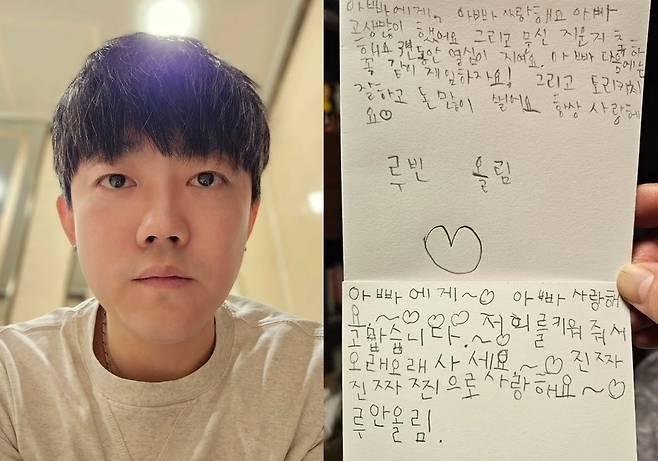 아빠에게, 아빠 사랑해요 아빠
고생많이 했어요 그리고 무신 지은지 축하
해요 3년동안 열심이 지어요. 아빠 다음에는
꼭 같이 게임하자요! 그리고 토리키치
잘하고 돈 많이 벌어요 항상 사랑해
요
루빈 올림
아빠에게~♡ 아빠 사랑해
요.~♡♡♡ 저희를 키워 줘서
고맙습니다.~♡
오래오래 사세요.~♡ 진짜
진짜 찐으로 사랑해요~♡
루안올림.